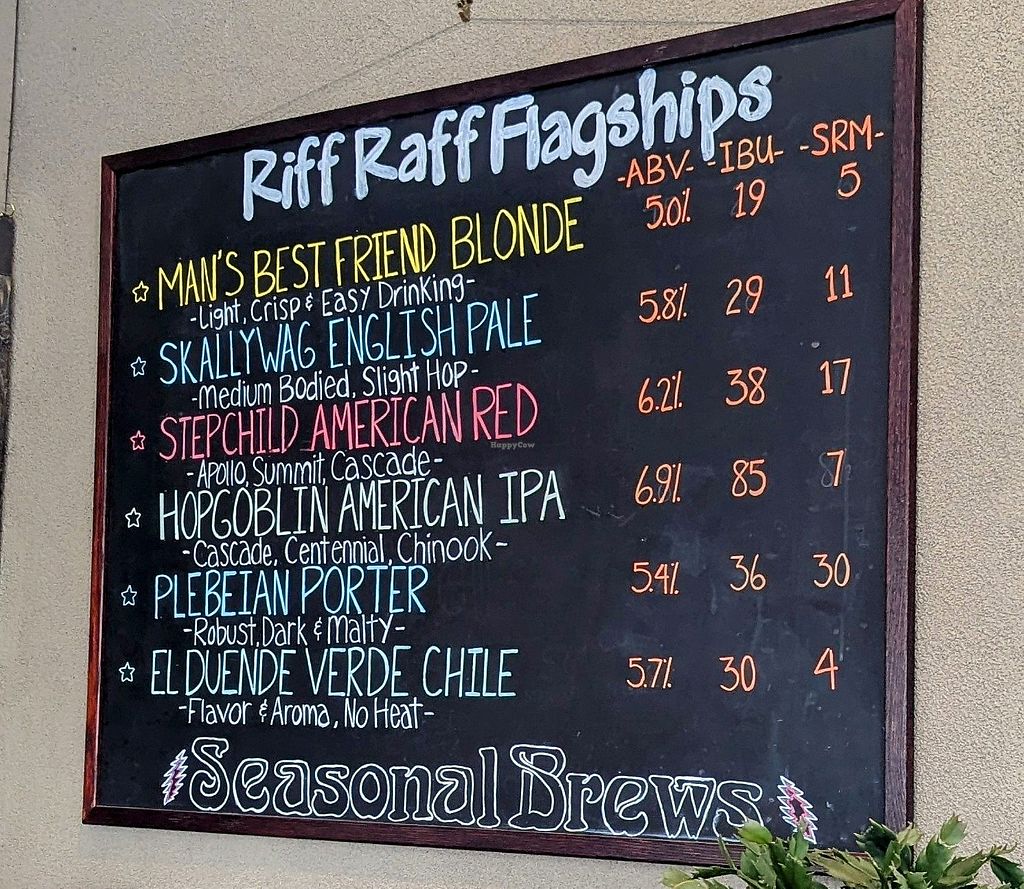 Riff Raff Flagships
-ABV- -IBU- -SRM-
MAN'S BEST FRIEND BLONDE 5.0% 19 5
-Light, Crisp & Easy Drinking-
SKALLYWAG ENGLISH PALE 5.8% 29 11
-Medium Bodied, Slight Hop-
STEPCHILD AMERICAN RED 6.2% 38 17
-Apollo, Summit, Cascade-
HOPGOBLIN AMERICAN IPA 6.9% 85 7
-Cascade, Centennial, Chinook-
PLEBEIAN PORTER 5.4% 36 30
-Robust, Dark & Malty-
EL DUENDE VERDE CHILE 5.7% 30 4
-Flavor & Aroma, No Heat-
Seasonal Brews
HappyCow